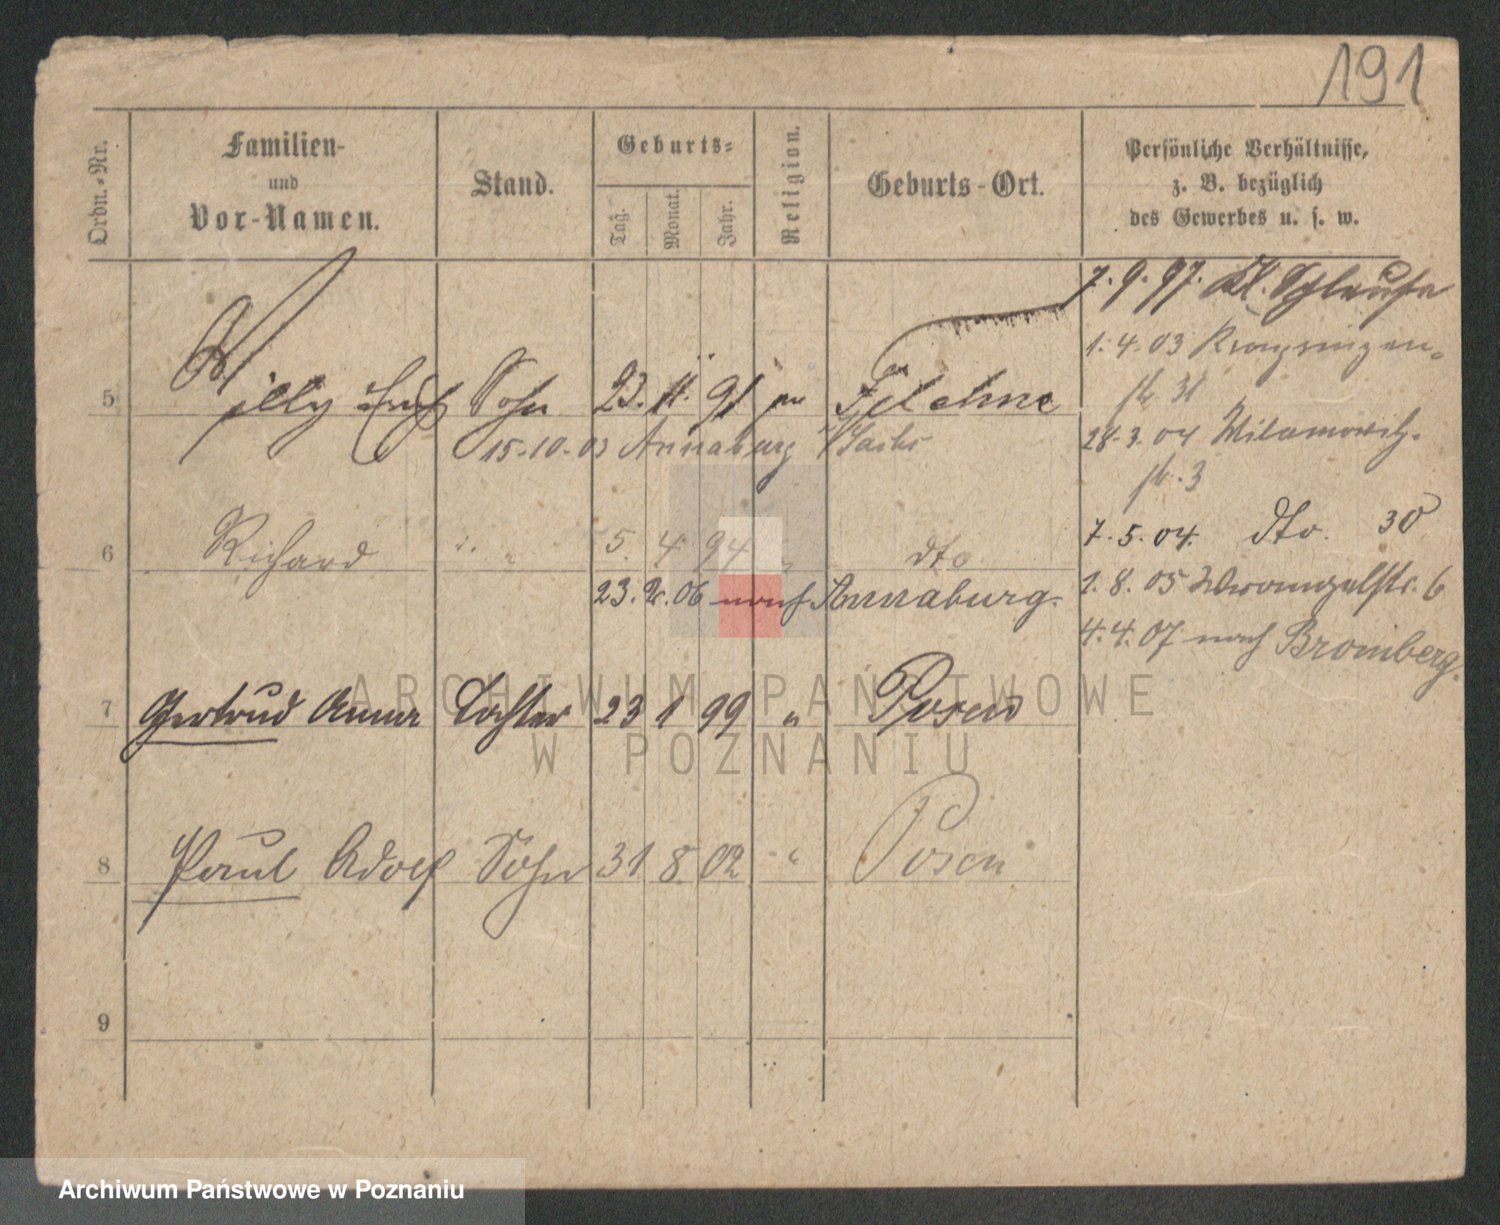 191
Ordn.-Nr.
Familien-
und
Vor-Namen.
Stand.
Geburts-
Tag.
Monat.
Jahr.
Religion.
Geburts-Ort.
Persönliche Verhältnisse,
z. B. bezüglich
des Gewerbes u. s. w.
5 Willy Erich Sohn 23. 11. 91 Filehne
15.10.03 Annaburg Sachs
6 Richard " " 5. 4. 94 " dto
23. 06 nach Annaburg.
7 Gertrud Anna Tochter 23 1 99 " Posen
8 Paul Adolf Sohn 31 8. 02 " Posen
9
7.9.97. Kl.
1.4.03
str 31
28.3.04
str. 3
7.5.04. dto. 30
1.8.05 Wrangelstr. 6
4.4.07 nach Bromberg.
ARCHIWUM PAŃSTWOWE
W POZNANIU
Archiwum Państwowe w Poznaniu